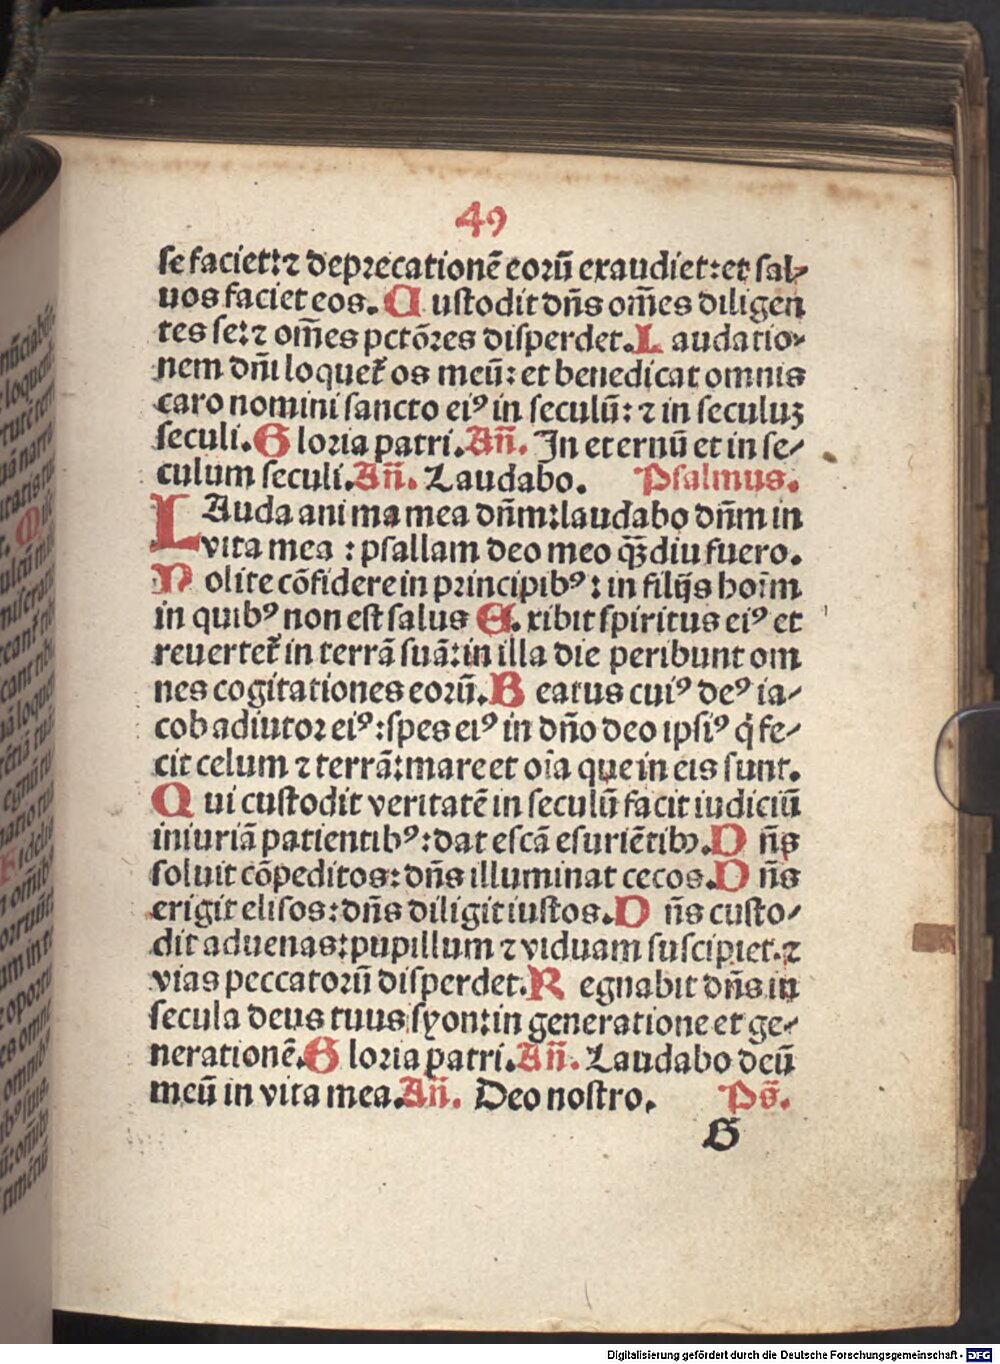 49
se faciet:⁊ deprecationē eorū exaudiet:et sal-
uos faciet eos. C ustodit dn̄s om̄es diligen
tes se:⁊ om̄es pctōres disperdet. L audatio-
nem dn̄i loquet᷑ os meū: et benedicat omnis
caro nomini sancto eiꝰ in seculū: ⁊ in seculuꝫ
seculi. G loria patri. An̄. In eternū et in se-
culum seculi. An̄. Laudabo. Psalmus.
LAuda anima mea dn̄m:laudabo dn̄m in
vita mea : psallam deo meo qȝ̄diu fuero.
N olite cōfidere in principibꝰ: in filijs hoīm
in quibꝰ non est salus E. xibit spiritus eiꝰ et
reuertet᷑ in terrā suā:in illa die peribunt om
nes cogitationes eorū. B eatus cuiꝰ deꝰ ia-
cob adiutor eiꝰ:spes eiꝰ in dn̄o deo ipsiꝰ q̇ fe-
cit celum ⁊ terrā:mare et oīa que in eis sunt.
Q ui custodit veritatē in seculū facit iudiciū
iniuriā patientibꝰ:dat escā esuriētibꝫ. D n̄s
soluit cōpeditos: dn̄s illuminat cecos. D n̄s
erigit elisos: dn̄s diligit iustos. D n̄s custo-
dit aduenas:pupillum ⁊ viduam suscipiet.⁊
vias peccatorū disperdet. R egnabit dn̄s in
secula deus tuus syon:in generatione et ge-
nerationē. G loria patri. An̄. Laudabo deū
meū in vita mea. An̄. Deo nostro. Ps̄.
G
Digitalisierung gefördert durch die Deutsche Forschungsgemeinschaft - DFG